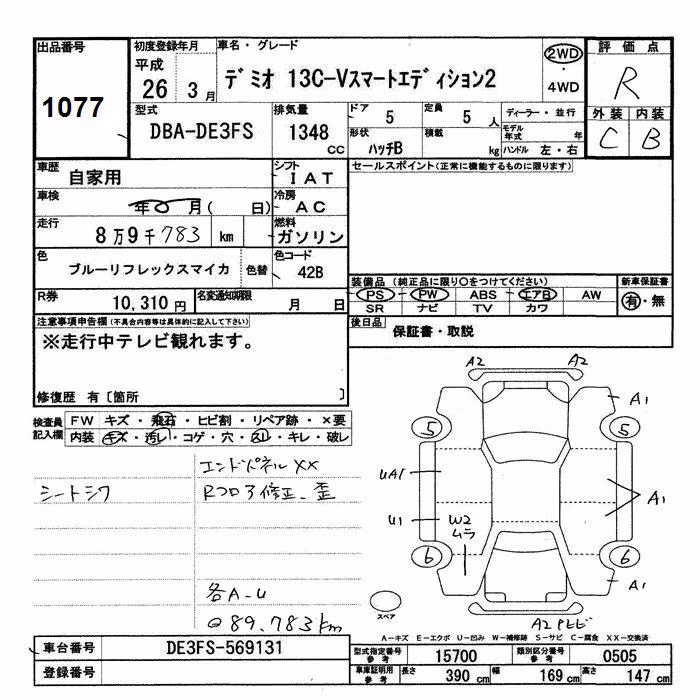 出品番号
1077
初度登録年月
平成
26 年 3 月
車名・グレード
デミオ 13C-Vスマートエディション2
2WD
・
4WD
評価点
R
外装 内装
C B
型式
DBA-DE3FS
排気量
1348 cc
ドア
5
定員
5 人
形状
ハッチB
積載
kg
ディーラー・並行
モデル年式 年
ハンドル 左・右
車歴
自家用
シフト
I AT
車検
年 月 ( 日)
冷房
AC
走行
8万9千783 km
燃料
ガソリン
色
ブルーリフレックスマイカ
色替
色コード
42B
R券
10,310円
名変通知期限
月 日
セールスポイント(正常に機能するものに限ります)
装備品 (純正品に限り○をつけてください)
PS PW ABS エアB AW
SR ナビ TV カワ
新車保証書
有・無
後日品
保証書・取説
注意事項申告欄(不具合内容等は具体的に記入して下さい)
※走行中テレビ観れます。
修復歴 有〔箇所 〕
検査員
記入欄
FW キズ・飛石・ヒビ割・リペア跡・×要
内装 キズ・汚レ・コゲ・穴・スレ・キレ・破レ
エンドパネルXX
シートシワ
Rフロア修正、歪
各A-U
89,783km
A2 A2
A1
5 5
UA1
A1
U1
W2
ムラ
6 6
A1
スペア
A2 PヒビA-キズ E-エクボ U-凹み W-補修跡 S-サビ C-腐食 XX-交換済
車台番号
DE3FS-569131
登録番号
型式指定番号
参考
15700
類別区分番号
参考
0505
車庫証明用
参考
長さ 390 cm 幅 169 cm 高さ 147 cm